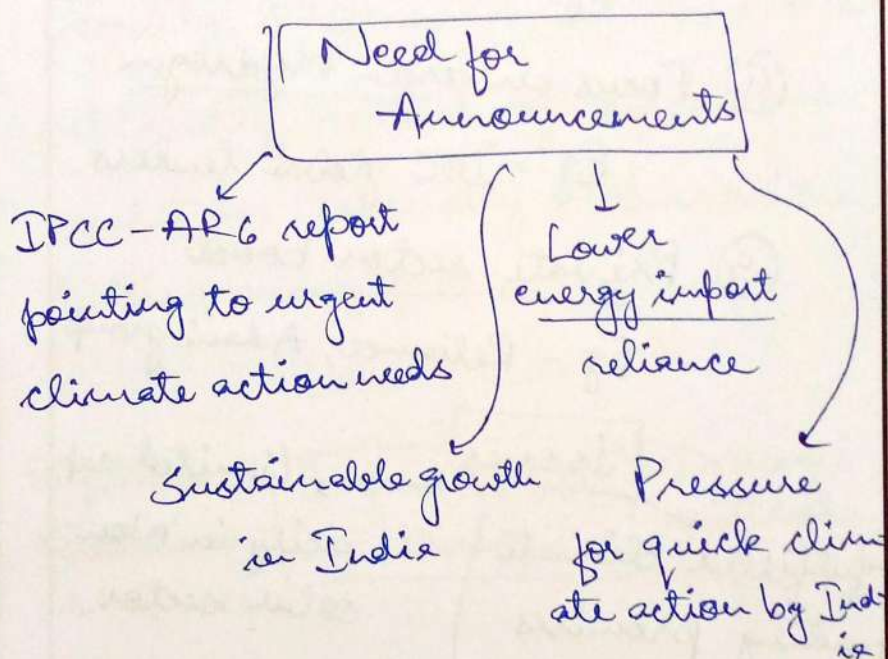 Need for
Announcements
IPCC-AR6 report
pointing to urgent
climate action needs
Lower
energy import
reliance
Sustainable growth
in India
Pressure
for quick clim-
ate action by Ind-
ia